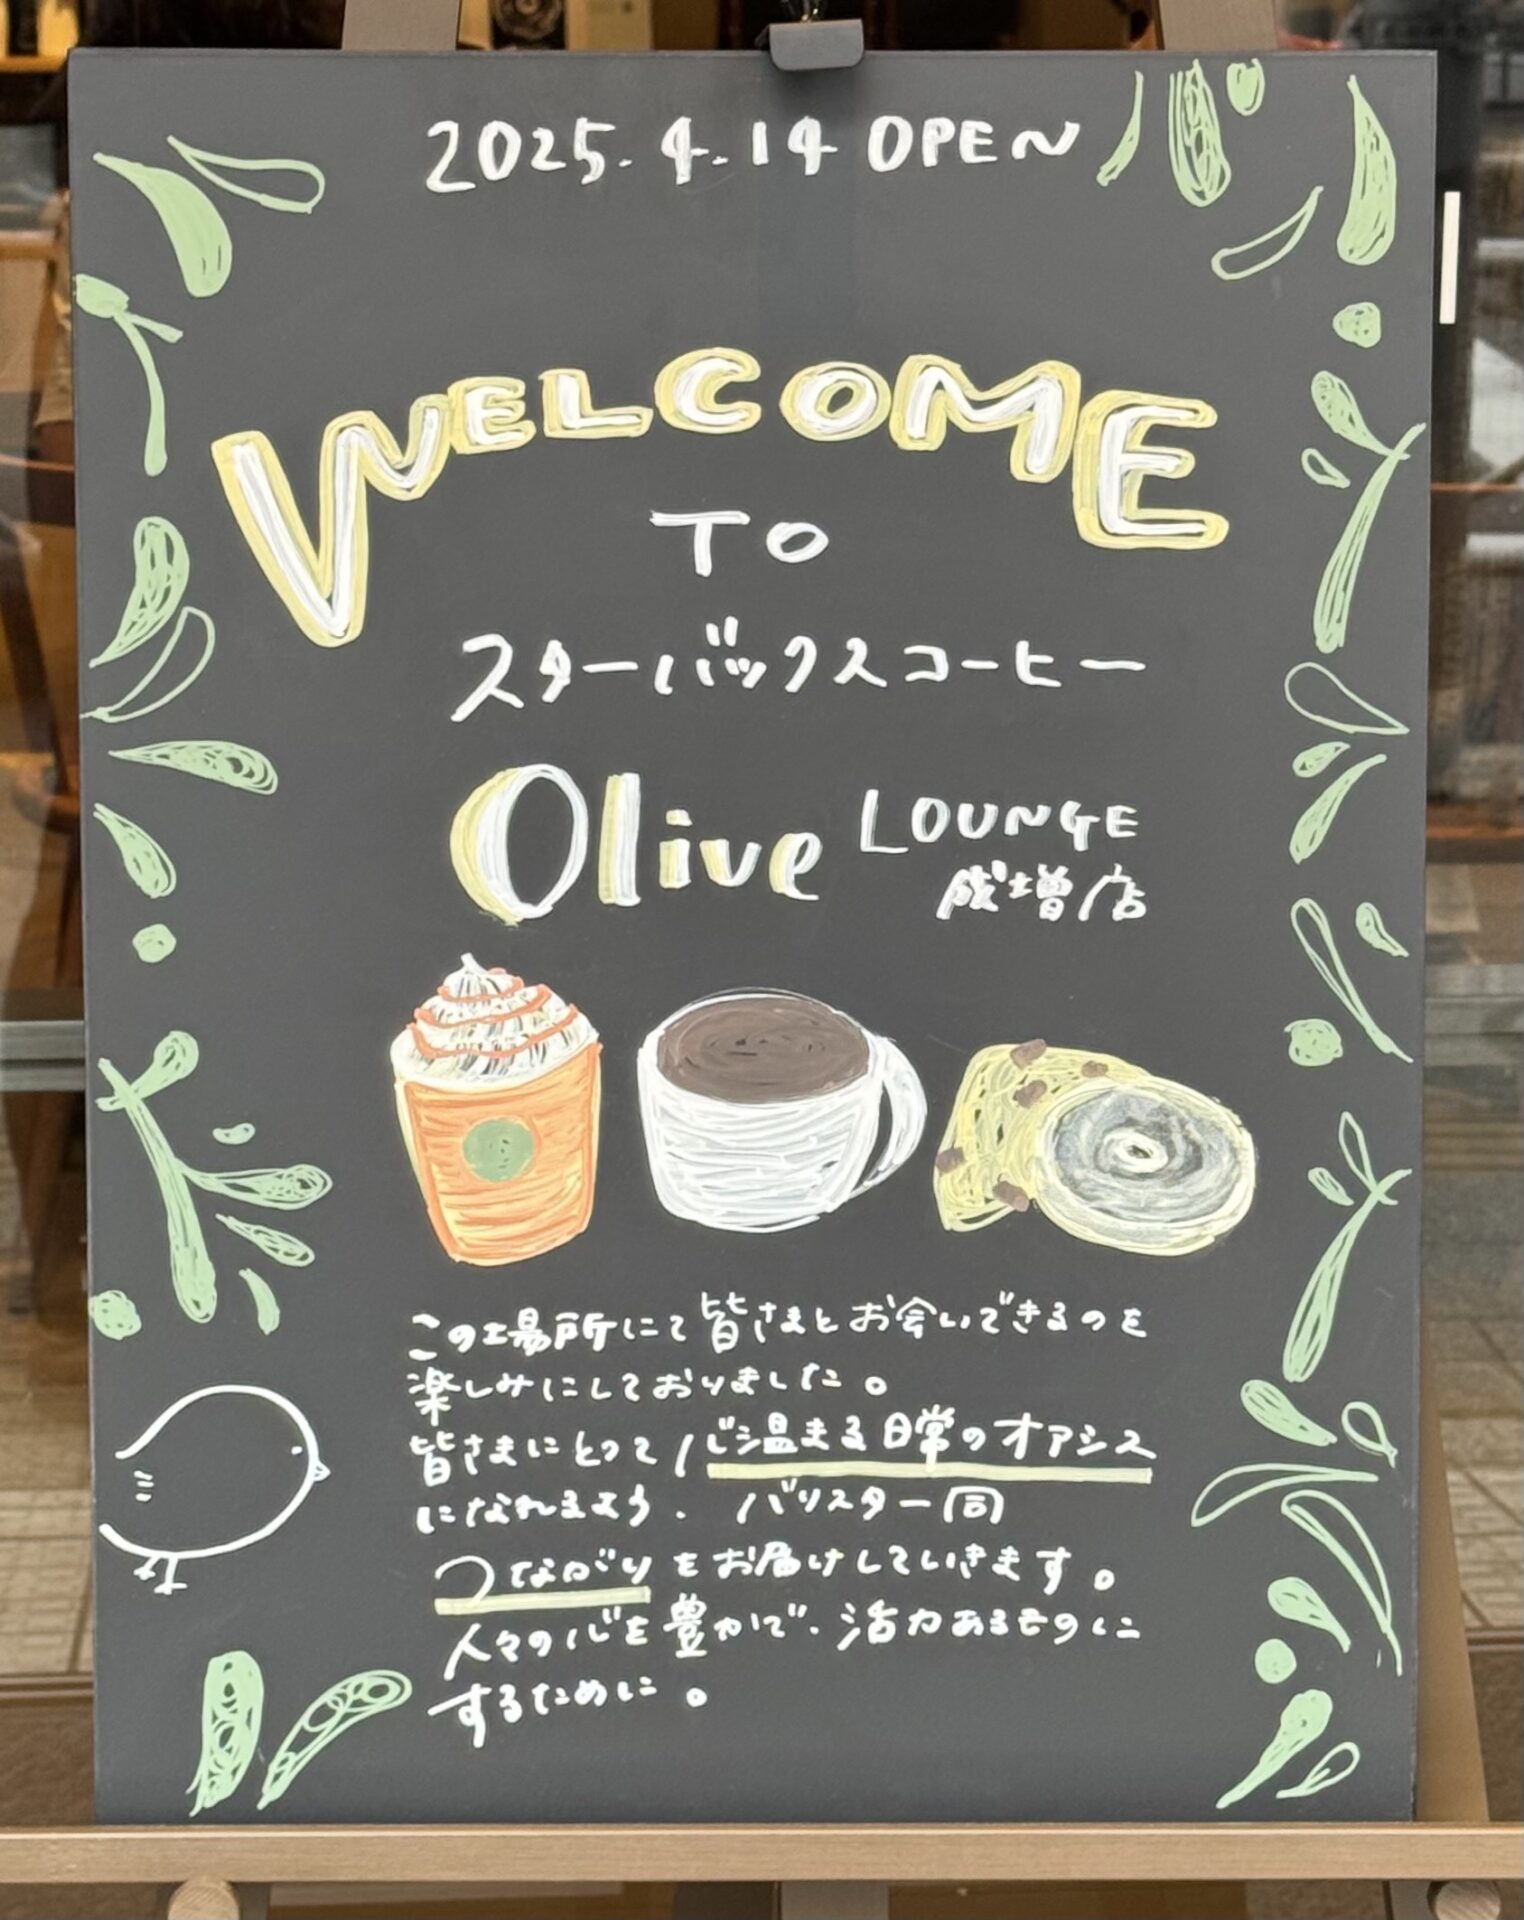 2025.4.14 OPEN
WELCOME
TO
スターバックスコーヒー
Olive LOUNGE
成増店
この場所にて皆さまとお会いできるのを
楽しみにしておりました。
皆さまにとって心温まる日常のオアシス
になれるよう、バリスター同
つながりをお届けしていきます。
人々の心を豊かで、活力あるものに
するために。